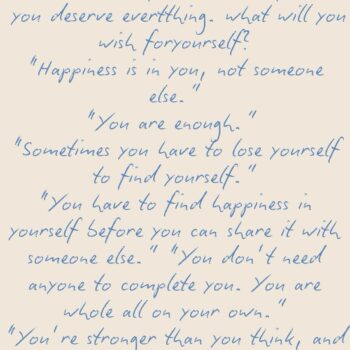 you deserve evertthing. what will you
wish foryourself?
"Happiness is in you, not someone
else."
"You are enough."
"Sometimes you have to lose yourself
to find yourself."
"You have to find happiness in
yourself before you can share it with
someone else." "You don't need
anyone to complete you. You are
whole all on your own."
"You're stronger than you think, and